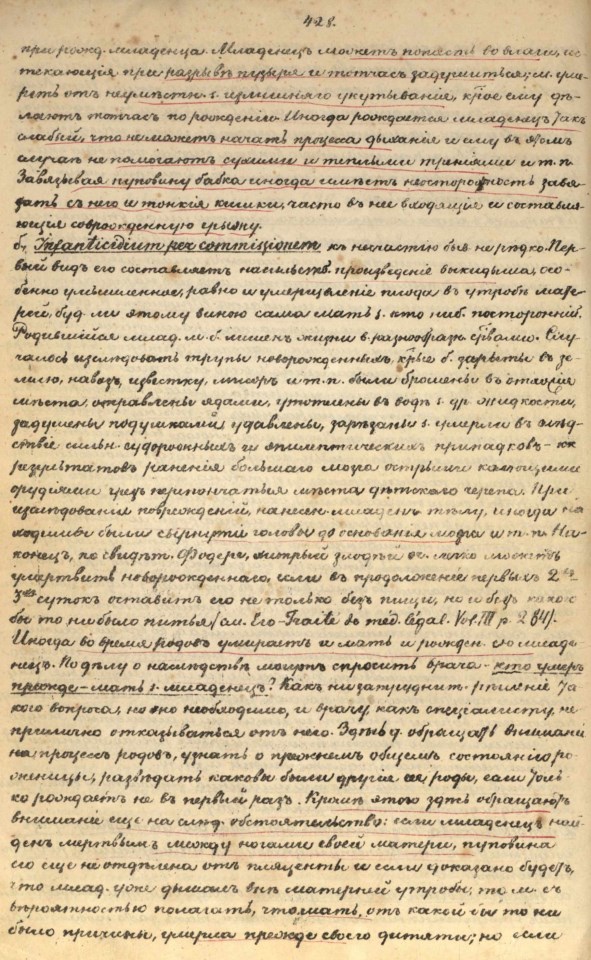 428.
при рожд. младенца. Младенецъ можетъ попасть во влаги, ис-
текающія при разрывѣ пузыря и тотчасъ задушиться; м. уме-
реть отъ неумѣстн. s. излишняго укутыванія, кꙋ҃ое ему дѣ-
лаютъ тотчасъ по рожденіи. Иногда рождается младенецъ такъ
слабый, что не можетъ начать процесса дыханія и ему въ этомъ
случаѣ не помогаютъ сухими и теплыми треніями и т. п.
Завязывая пуповину бабка иногда имѣетъ неосторожность завя-
зать съ него и тонкія кишки, часто въ нее входящія и составля-
ющія соврожденную грыжу.
б, Infanticidium per commissionem къ несчастію быв. не рѣдко. Пер-
вый видъ его составляетъ насильств. произведеніе выкидыша, осо-
бенно умышленное, равно и умерщвленіе плода въ утробѣ мате-
рей, буд. ли этому виною сама мать s. кто ниб. посторонній.
Родившійся млад. м. б. лишенъ жизни в. разнообразн. ср҃твами. Слу-
чалось изслѣдовать трупы новорожденныхъ, кр҃ые б. зарыты въ зе-
млю, навозъ, известку, мусоръ и т. п. были брошены въ отхожія
мѣста, отравлены ядами, утоплены въ водѣ s. др. жидкости,
задушены подушками, удавлены, зарѣзаны s. умерли въ слѣд-
ствіе сильн. судорожныхъ и эпилептическихъ припадковъ - кк
результатовъ раненія большаго мозга острыми колющими
орудіями чрезъ перепончатыя мѣста дѣтскаго черепа. При
изслѣдованіи поврежденій, нанесен. младен. тѣлу, иногда на-
ходимы были свернутіе головы до основанія мозга и т. п. На-
конецъ, по свидѣт. Фодере, хитрый злодѣй оч. легко можетъ
умертвить новорожденнаго, если въ продолженіе первыхъ 2хъ
3хъ сутокъ оставитъ его не только безъ пищи, но и безъ какого
бы то ни было питья (см. Его - Traité de med. légal. Vol. III p. 284).
Иногда во время родовъ умираетъ и мать и рожден. ею младе-
нецъ. По дѣлу о наслѣдствѣ могутъ спросить врача - кто умеръ
прежде - мать s. младенецъ? Какъ ни затруднит. рѣшеніе та-
кого вопроса, но оно необходимо, и врачу какъ спеціалисту, не
прилично отказываться отъ него. Здѣсь д. обращать вниманіе
на процессъ родовъ, узнать о прежнемъ общемъ состояніи ро-
женицы, развѣдать каковы были другіе ее роды, если толь-
ко рождаетъ не въ первый разъ. Кромѣ этого здѣсь обращаютъ
вниманіе еще на слѣд. обстоятельство: если младенецъ най-
денъ мертвымъ между ногами своей матери, пуповина
его еще не отдѣлена отъ плаценты и если доказано будетъ,
что млад. уже дышалъ внѣ матерней утробы, то м. съ
вѣроятностью полагать, что мать, отъ какой бы то ни
было причины, умерла прежде своего дитяти; но если